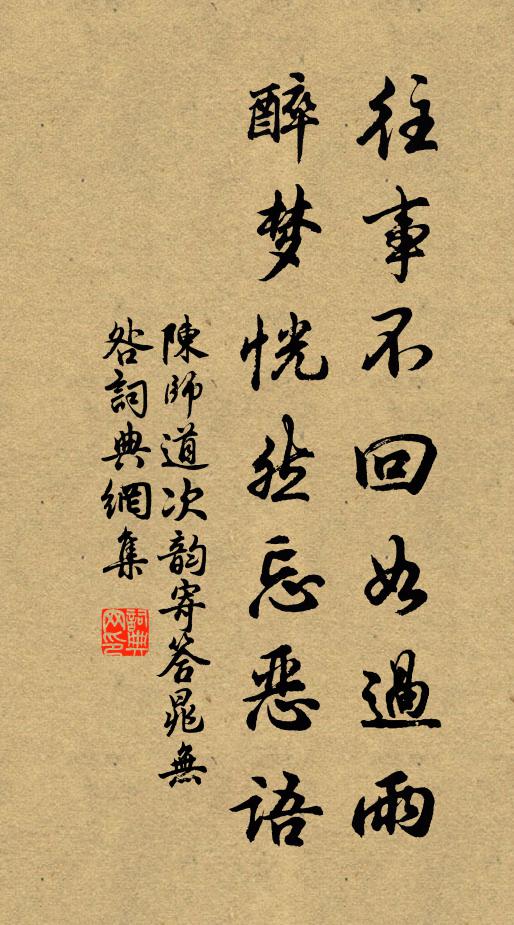 往事不回如過雨
醉梦恍然忘恶語
陳師道次韵寄答晁無
咎詞典網集
詞典网印